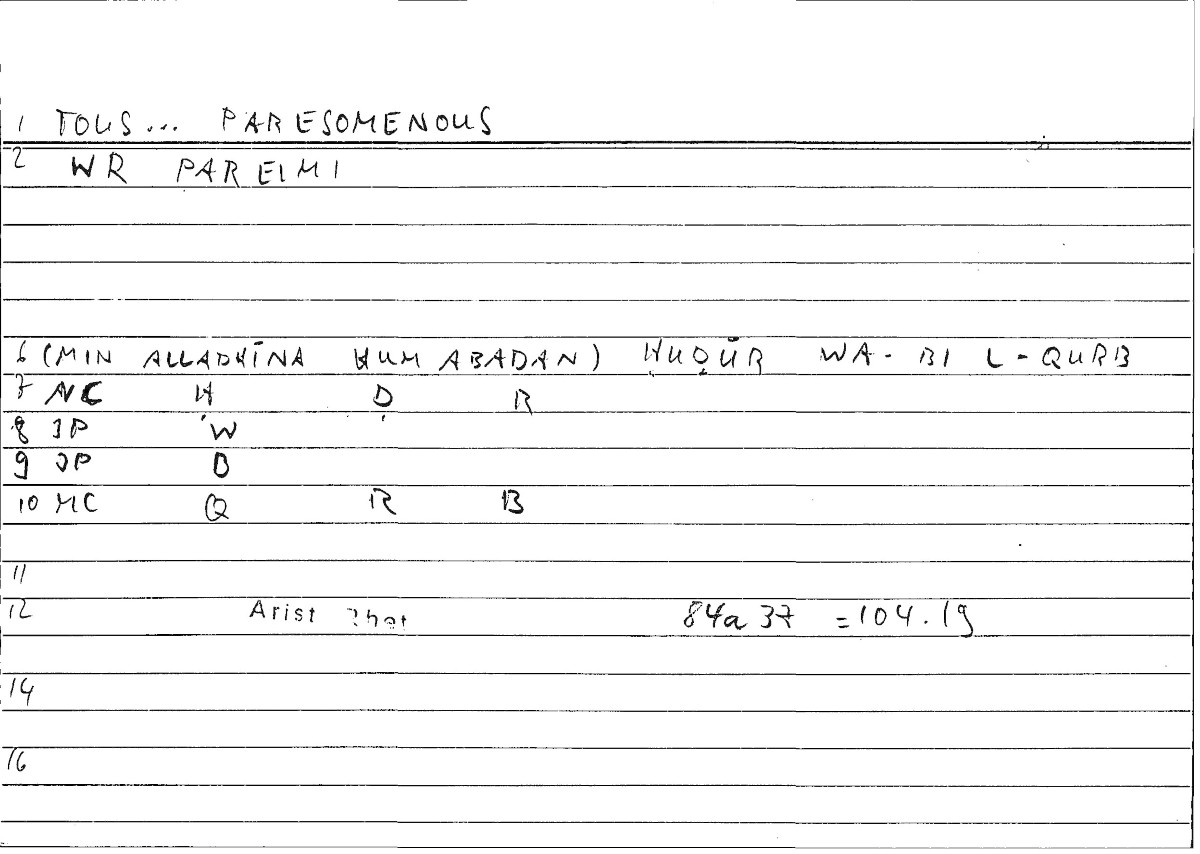 1 TOUS... PARESOMENOUS
2 WR PAREIMI
6 (MIN ALLADHĪNA HUM ABADAN) ḤUḌŪR WA-BI L-QURB
7 NC Ḥ Ḍ R
8 JP W
9 JP B
10 MC Q R B
11
12 Arist Rhet 84a37 =104.19
14
16